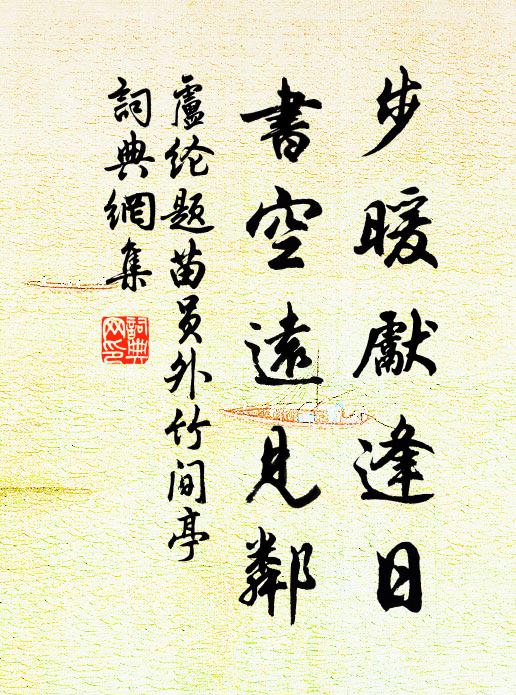 步暖厭逢日
書空遠見鄰
盧綸题苗员外竹间亭
詞典網集
詞典网印